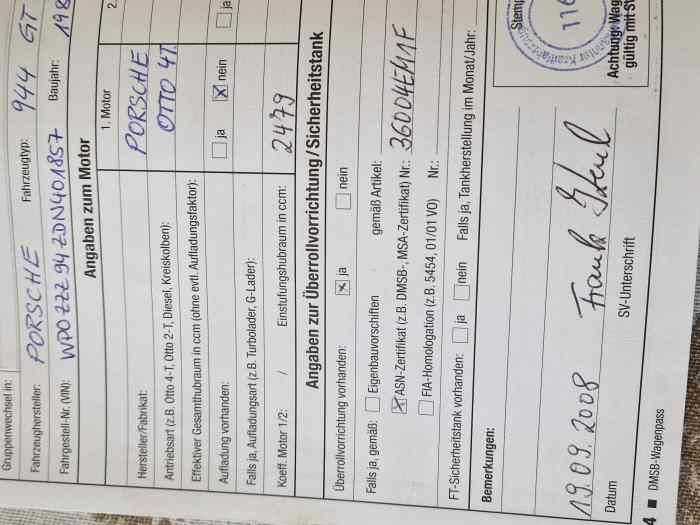 Gruppenwechsel in:
Fahrzeughersteller: PORSCHE Fahrzeugtyp: 944 GT
Fahrgestell-Nr. (VIN): WPOZZZ94ZDN401857 Baujahr: 198
Angaben zum Motor
1. Motor 2.
Hersteller/Fabrikat: PORSCHE
Antriebsart (z.B. Otto 4-T, Otto 2-T, Diesel, Kreiskolben): OTTO 4T.
Effektiver Gesamthubraum in ccm (ohne evtl. Aufladungsfaktor):
Aufladung vorhanden: ja nein ja
Falls ja, Aufladungsart (z.B. Turbolader, G-Lader):
Koeff. Motor 1/2: / Einstufungshubraum in ccm: 2479
Angaben zur Überrollvorrichtung/Sicherheitstank
Überrollvorrichtung vorhanden: ja nein
Falls ja, gemäß: Eigenbauvorschriften gemäß Artikel:
ASN-Zertifikat (z.B. DMSB-, MSA-Zertifikat) Nr.: 36004EM1F
FIA-Homologation (z.B. 5454, 01/01 VO) Nr.:
FT-Sicherheitstank vorhanden: ja nein Falls ja, Tankherstellung im Monat/Jahr:
Bemerkungen:
Stemp
116
Achtung: Wag
gültig mit St
19.09.2008 Frank
Datum SV-Unterschrift
4 ■ DMSB-Wagenpass